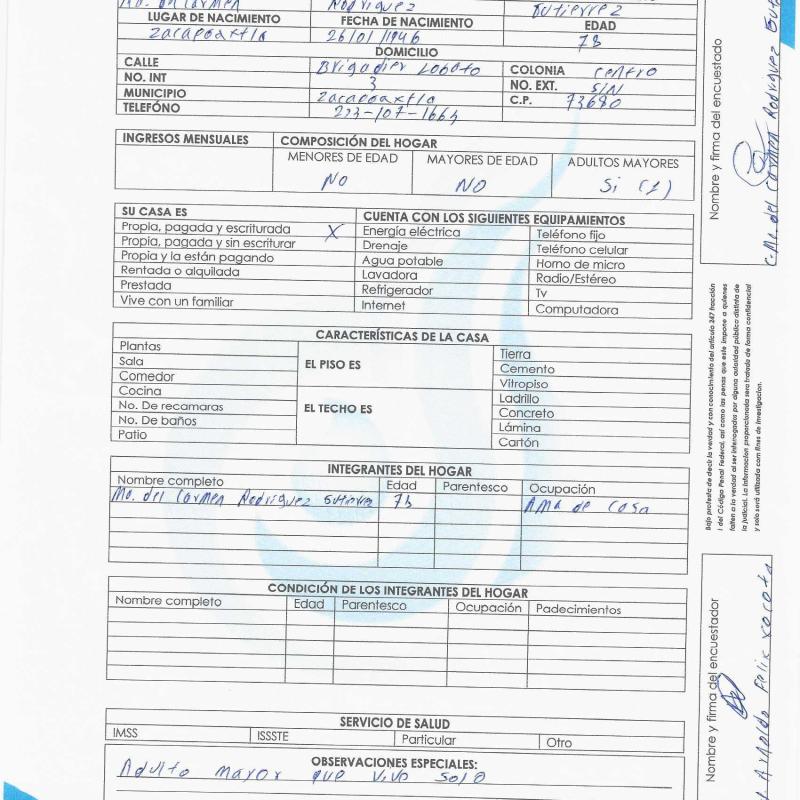 Ma. del Carmen Rodriguez Gutierrez
LUGAR DE NACIMIENTO FECHA DE NACIMIENTO EDAD
Zacapoaxtla 26/01/1946 73
DOMICILIO
CALLE Brigadier Lobato COLONIA centro
NO. INT 3 NO. EXT. S/N
MUNICIPIO Zacapoaxtla C.P. 73680
TELÉFONO 233-107-1663
INGRESOS MENSUALES COMPOSICIÓN DEL HOGAR
MENORES DE EDAD MAYORES DE EDAD ADULTOS MAYORES
NO NO Si (1)
SU CASA ES CUENTA CON LOS SIGUIENTES EQUIPAMIENTOS
Propia, pagada y escriturada X Energía eléctrica Teléfono fijo
Propia, pagada y sin escriturar Drenaje Teléfono celular
Propia y la están pagando Agua potable Horno de micro
Rentada o alquilada Lavadora Radio/Estéreo
Prestada Refrigerador Tv
Vive con un familiar Internet Computadora
CARACTERÍSTICAS DE LA CASA
Plantas Tierra
Sala EL PISO ES Cemento
Comedor Vitropiso
Cocina Ladrillo
No. De recamaras EL TECHO ES Concreto
No. De baños Lámina
Patio Cartón
INTEGRANTES DEL HOGAR
Nombre completo Edad Parentesco Ocupación
Ma. del Carmen Rodriguez Gutierrez 73 Ama de casa
CONDICIÓN DE LOS INTEGRANTES DEL HOGAR
Nombre completo Edad Parentesco Ocupación Padecimientos
SERVICIO DE SALUD
IMSS ISSSTE Particular Otro
OBSERVACIONES ESPECIALES:
Adulto mayor que vive solo
Nombre y firma del encuestado
C. Ma. del Carmen Rodriguez Gut
Bajo protesta de decir la verdad y con conocimiento del artículo 247 fracción
I del Código Penal Federal, así como las penas que este impone a quienes
falten a la verdad al ser interrogados por alguna autoridad pública distinta de
la judicial. La información proporcionada será tratada de forma confidencial
y solo será utilizada con fines de investigación.
Nombre y firma del encuestador
Arnoldo Felix Xocota